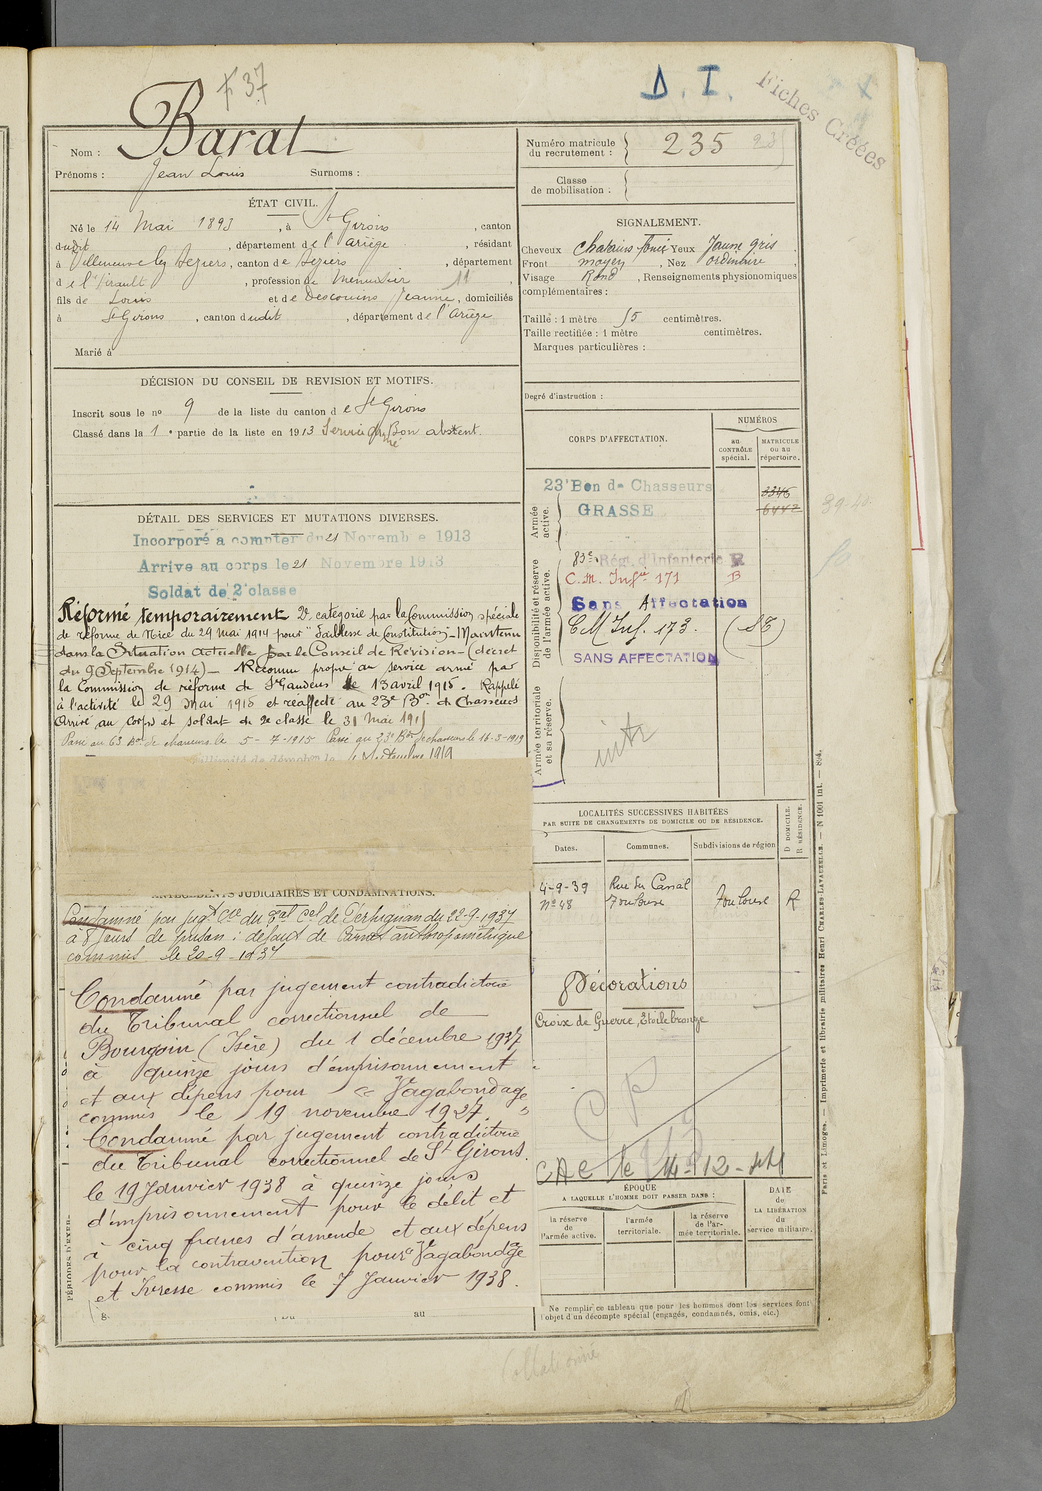 F 37
D. I.
Fiches Créées
Nom : Barat
Prénoms : Jean Louis Surnoms :
Numéro matricule du recrutement : 235
Classe de mobilisation :
ÉTAT CIVIL.
Né le 14 Mai 1893, à St Girons, canton
dudit, département de l'Ariège, résidant
à Villeneuve les Beziers, canton de Beziers, département
de l'Hérault, profession de Menuisier 11,
fils de Louis et de Descouins Jeanne, domiciliés
à St Girons, canton dudit, département de l'Ariège
Marié à
SIGNALEMENT.
Cheveux chatains foncé Yeux Jaune gris
Front moyen, Nez ordinaire,
Visage Rond, Renseignements physionomiques
complémentaires :
Taille : 1 mètre 55 centimètres.
Taille rectifiée : 1 mètre centimètres.
Marques particulières :
Degré d'instruction :
DÉCISION DU CONSEIL DE REVISION ET MOTIFS.
Inscrit sous le no 9 de la liste du canton de St Girons
Classé dans la 1e partie de la liste en 1913 Service armé Bon absent.
DÉTAIL DES SERVICES ET MUTATIONS DIVERSES.
Incorporé à compter du 21 Novembre 1913
Arrivé au corps le 21 Novembre 1913
Soldat de 2e classe
Réformé temporairement 2e catégorie par la Commission spéciale
de réforme de Nice du 29 Mai 1914 pour "Faiblesse de Constitution" - Maintenu
dans la Situation actuelle par le Conseil de Révision - (décret
du 9 Septembre 1914) - Reconnu propre au service armé par
la Commission de réforme de St Gaudens le 13 avril 1915. Rappelé
à l'activité le 29 Mai 1915 et réaffecté au 23e Bon de Chasseurs
Arrivé au corps et soldat de 2e classe le 31 Mai 1915
Passé au 63 Bon de chasseurs le 5-7-1915 Passé au 23e Bon de chasseurs le 16-3-1919
Septembre 1919
CORPS D'AFFECTATION.
NUMÉROS
au CONTRÔLE spécial.
MATRICULE ou au répertoire.
Armée active.
23e Bon de Chasseurs
GRASSE
3346
6442
39-40
Disponibilité et réserve de l'armée active.
83e Régt. d'Infanterie R
C. M. Infie 171 B
Sans Affectation
C M Inf. 173. (SE)
SANS AFFECTATION
Armée territoriale et sa réserve.
intr
LOCALITÉS SUCCESSIVES HABITÉES
PAR SUITE DE CHANGEMENTS DE DOMICILE OU DE RÉSIDENCE.
Dates. Communes. Subdivisions de région
D DOMICILE. R RÉSIDENCE.
4-9-39 Rue du Canal
No 48 Toulouse Toulouse R
ANTÉCÉDENTS JUDICIAIRES ET CONDAMNATIONS.
Condamné par jugt Cre du Bal Cel de Perpignan du 22-9-1937
à 8 jours de prison : défaut de Carnet anthropométrique
commis le 20-9-1937
Condamné par jugement contradictoire
du Tribunal correctionnel de
Bourgoin (Isère) du 1 décembre 1937
à quinze jours d'emprisonnement
et aux dépens pour "Vagabondage"
commis le 19 novembre 1927.
Condamné par jugement contradictoire
du Tribunal correctionnel de St Girons.
le 19 Janvier 1938 à quinze jours
d'emprisonnement pour le délit et
à cinq francs d'amende et aux dépens
pour la contravention pour Vagabondage
et Ivresse commis le 7 Janvier 1938.
PÉRIODES D'EXER
au
Décorations
Croix de Guerre, Etoile bronze
CR
CAC le 14-12-44
ÉPOQUE
A LAQUELLE L'HOMME DOIT PASSER DANS :
la réserve de l'armée active.
l'armée territoriale.
la réserve de l'armée territoriale.
DATE de LA LIBÉRATION du service militaire.
Ne remplir ce tableau que pour les hommes dont les services font
l'objet d'un décompte spécial (engagés, condamnés, omis, etc.)
Paris et Limoges. — Imprimerie et librairie militaires Henri CHARLES-LAVAUZELLE. — N 1001 int. — 804.
Collationné